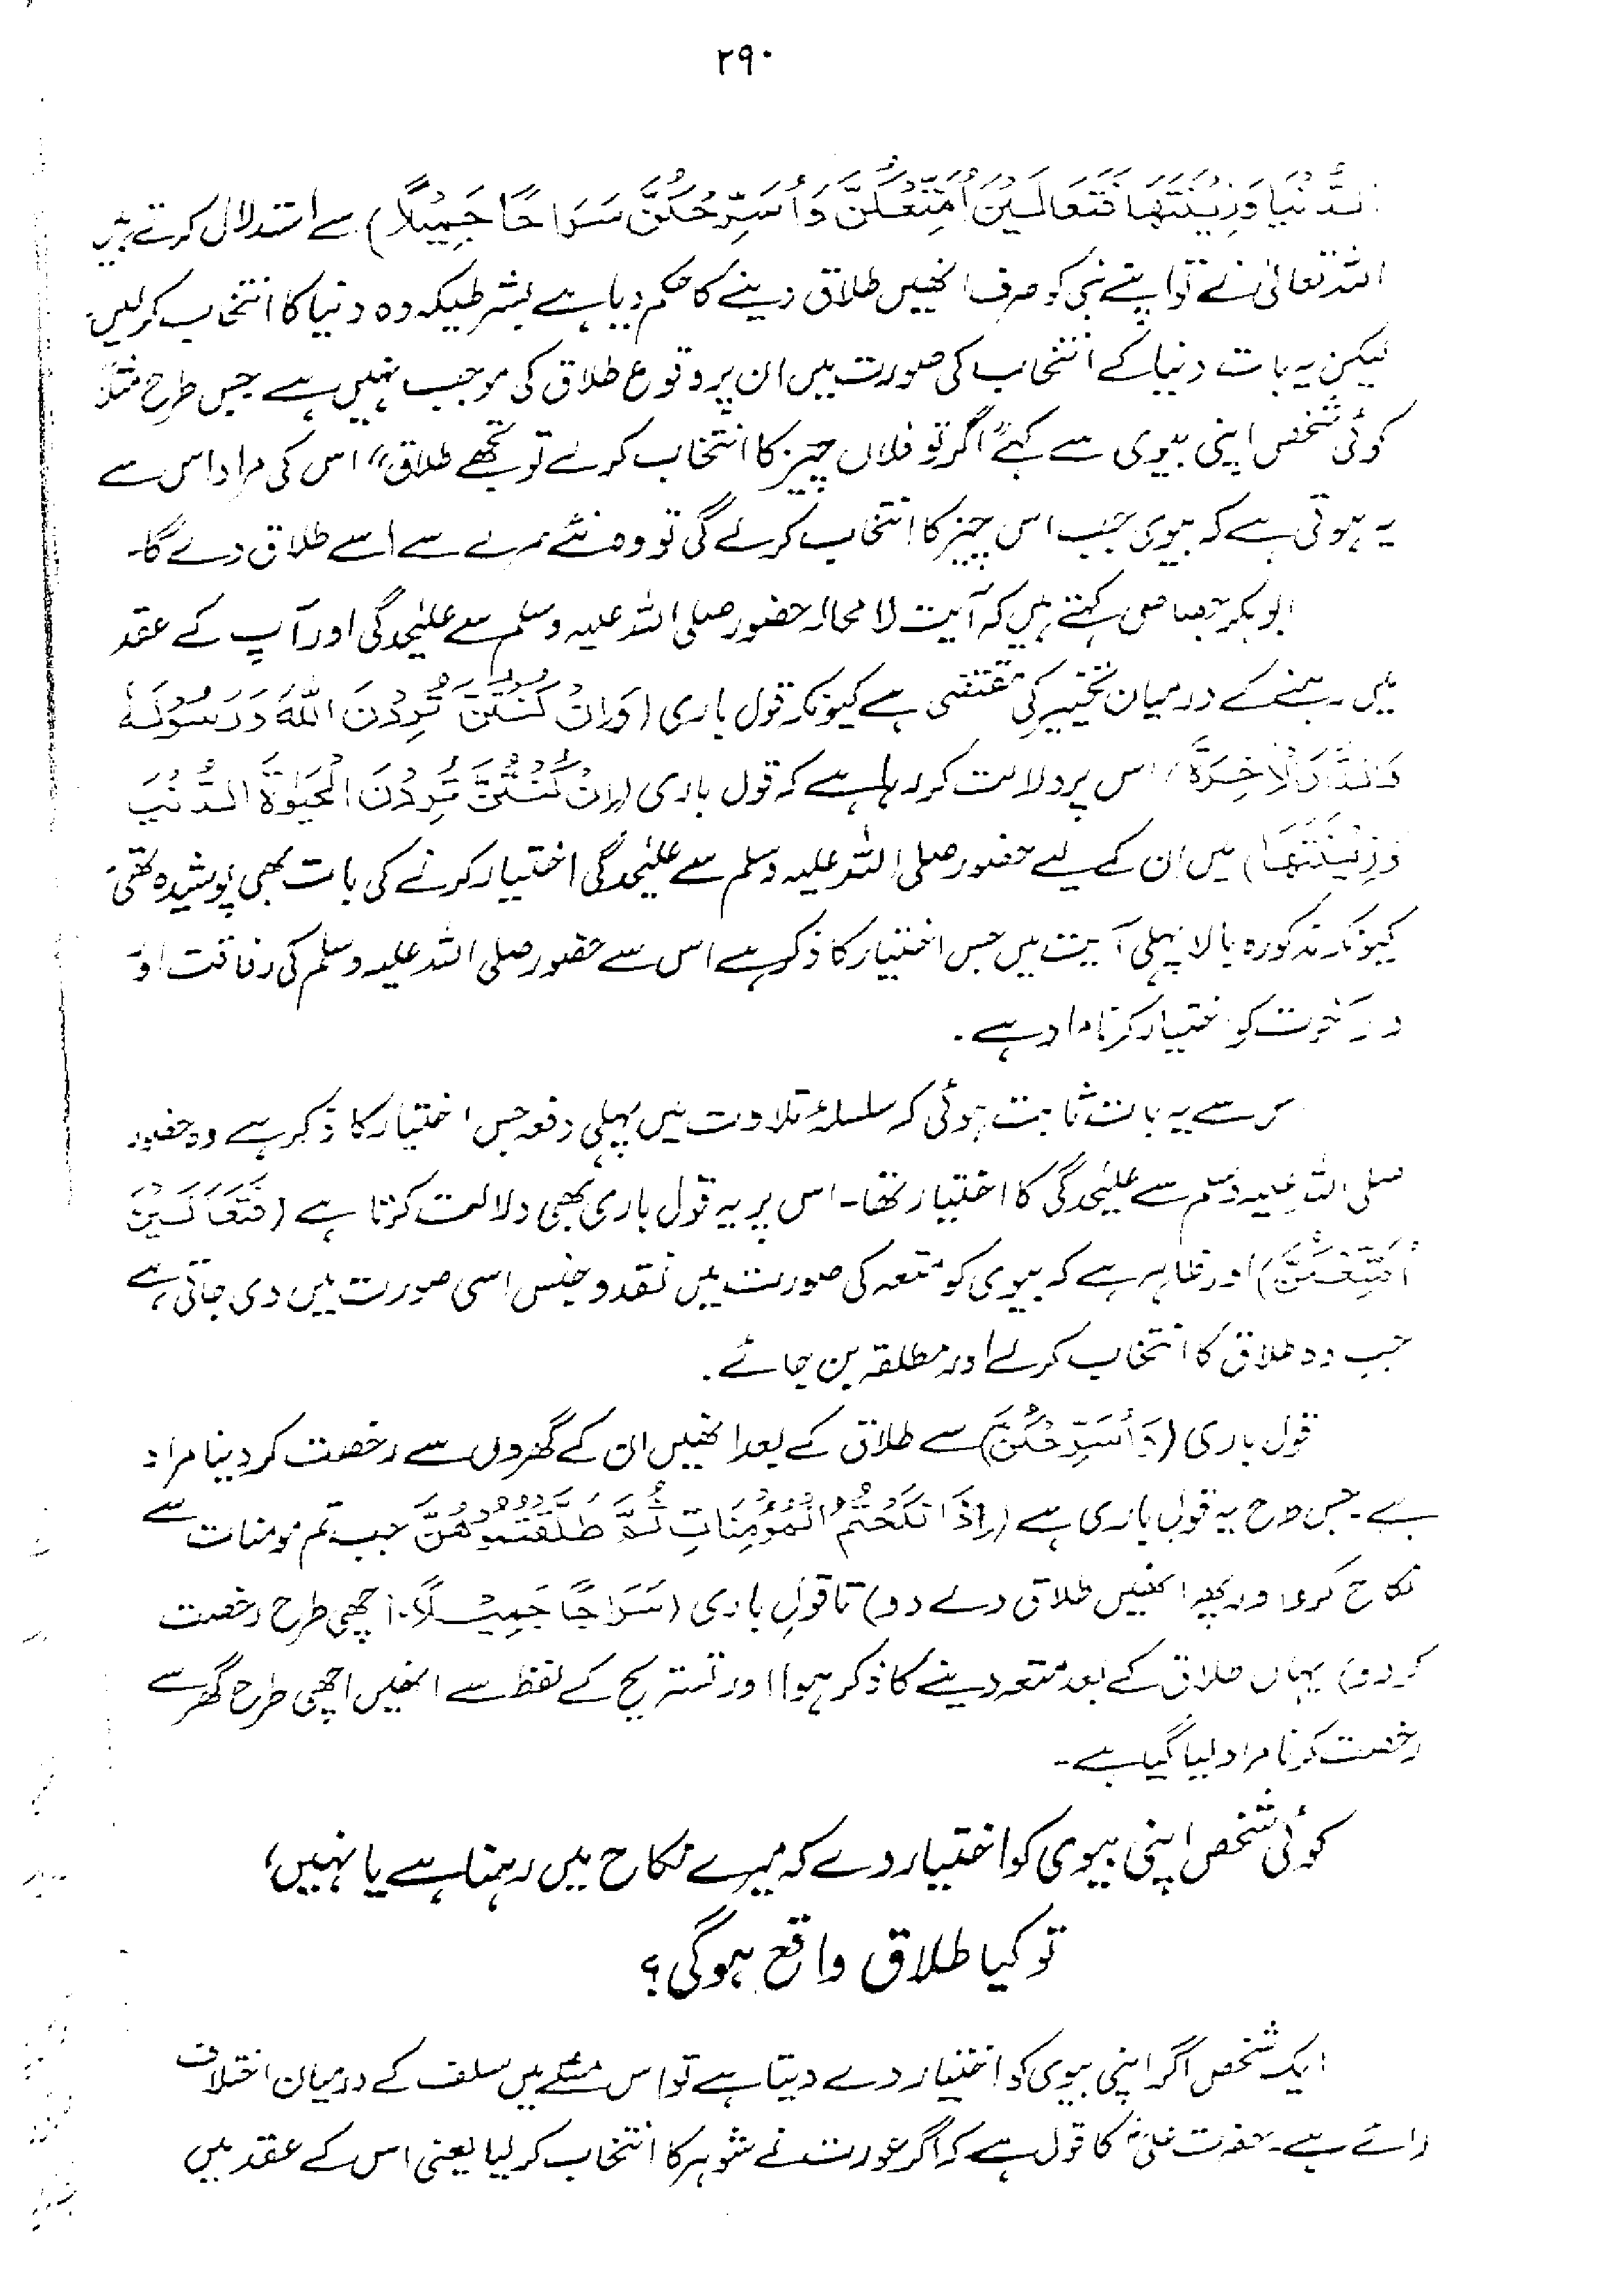 ۲۹۰
الدُّنْيَا وَزِيْنَتَهَا فَتَعَالَيْنَ اُمَتِّعْكُنَّ وَاُسَرِّحْكُنَّ سَرَاحًا جَمِيْلًا) سے استدلال کرتے ہیں
اللہ تعالیٰ نے تو اپنے نبی کو صرف انھیں طلاق دینے کا حکم دیا ہے بشرطیکہ وہ دنیا کا انتخاب کرلیں
لیکن یہ بات دنیا کے انتخاب کی صورت میں ان پر وقوع طلاق کی موجب نہیں ہے جس طرح مثلاً
کوئی شخص اپنی بیوی سے کہے "اگر تو فلاں چیز کا انتخاب کرلے تو تجھے طلاق" اس کی مراد اس سے
یہ ہوتی ہے کہ بیوی جب اس چیز کا انتخاب کرلے گی تو وہ نئے سرے سے اسے طلاق دے گا۔
ابوبکر جصاص کہتے ہیں کہ آیت لا محالہ حضور صلی اللہ علیہ وسلم سے علیحدگی اور آپ کے عقد
میں رہنے کے درمیان تخییر کی مقتضی ہے کیونکہ قول باری (وَاِنْ كُنْتُنَّ تُرِدْنَ اللّٰهَ وَرَسُوْلَهٗ
وَالدَّارَ الْاٰخِرَةَ) اس پر دلالت کر رہا ہے کہ قول باری (اِنْ كُنْتُنَّ تُرِدْنَ الْحَيٰوةَ الدُّنْيَا
وَزِيْنَتَهَا) میں ان کے لیے حضور صلی اللہ علیہ وسلم سے علیحدگی اختیار کرنے کی بات بھی پوشیدہ تھی
کیونکہ مذکورہ بالا پہلی آیت میں جس اختیار کا ذکر ہے اس سے حضور صلی اللہ علیہ وسلم کی رفاقت اور
دار آخرت کو اختیار کرنا مراد ہے۔
اس سے یہ بات ثابت ہوئی کہ سلسلۂ تلاوت میں پہلی دفعہ جس اختیار کا ذکر ہے وہ حضور
صلی اللہ علیہ وسلم سے علیحدگی کا اختیار تھا۔ اس پر یہ قول باری بھی دلالت کرتا ہے (فَتَعَالَيْنَ
اُمَتِّعْكُنَّ) اور ظاہر ہے کہ بیوی کو متعہ کی صورت میں نقد و جنس اسی صورت میں دی جاتی ہے
جب وہ طلاق کا انتخاب کرلے اور مطلقہ بن جائے۔
قول باری (وَاُسَرِّحْكُنَّ) سے طلاق کے بعد انھیں ان کے گھروں سے رخصت کر دینا مراد
ہے۔ جس طرح یہ قول باری ہے (اِذَا نَكَحْتُمُ الْمُؤْمِنَاتِ ثُمَّ طَلَّقْتُمُوْهُنَّ جب تم مومنات سے
نکاح کرو اور پھر انھیں طلاق دے دو) تا قولِ باری (سَرَاحًا جَمِيْلًا۔ اچھی طرح رخصت
کر دو) یہاں طلاق کے بعد متعہ دینے کا ذکر ہوا اور تسریح کے لفظ سے انھیں اچھی طرح گھر سے
رخصت کرنا مراد لیا گیا ہے۔
کوئی شخص اپنی بیوی کو اختیار دے کہ میرے نکاح میں رہنا ہے یا نہیں،
تو کیا طلاق واقع ہوگی؟
ایک شخص اگر اپنی بیوی کو اختیار دے دیتا ہے تو اس مسئلے میں سلف کے درمیان اختلاف
رائے ہے۔ حضرت علیؓ کا قول ہے کہ اگر عورت نے شوہر کا انتخاب کرلیا یعنی اس کے عقد میں